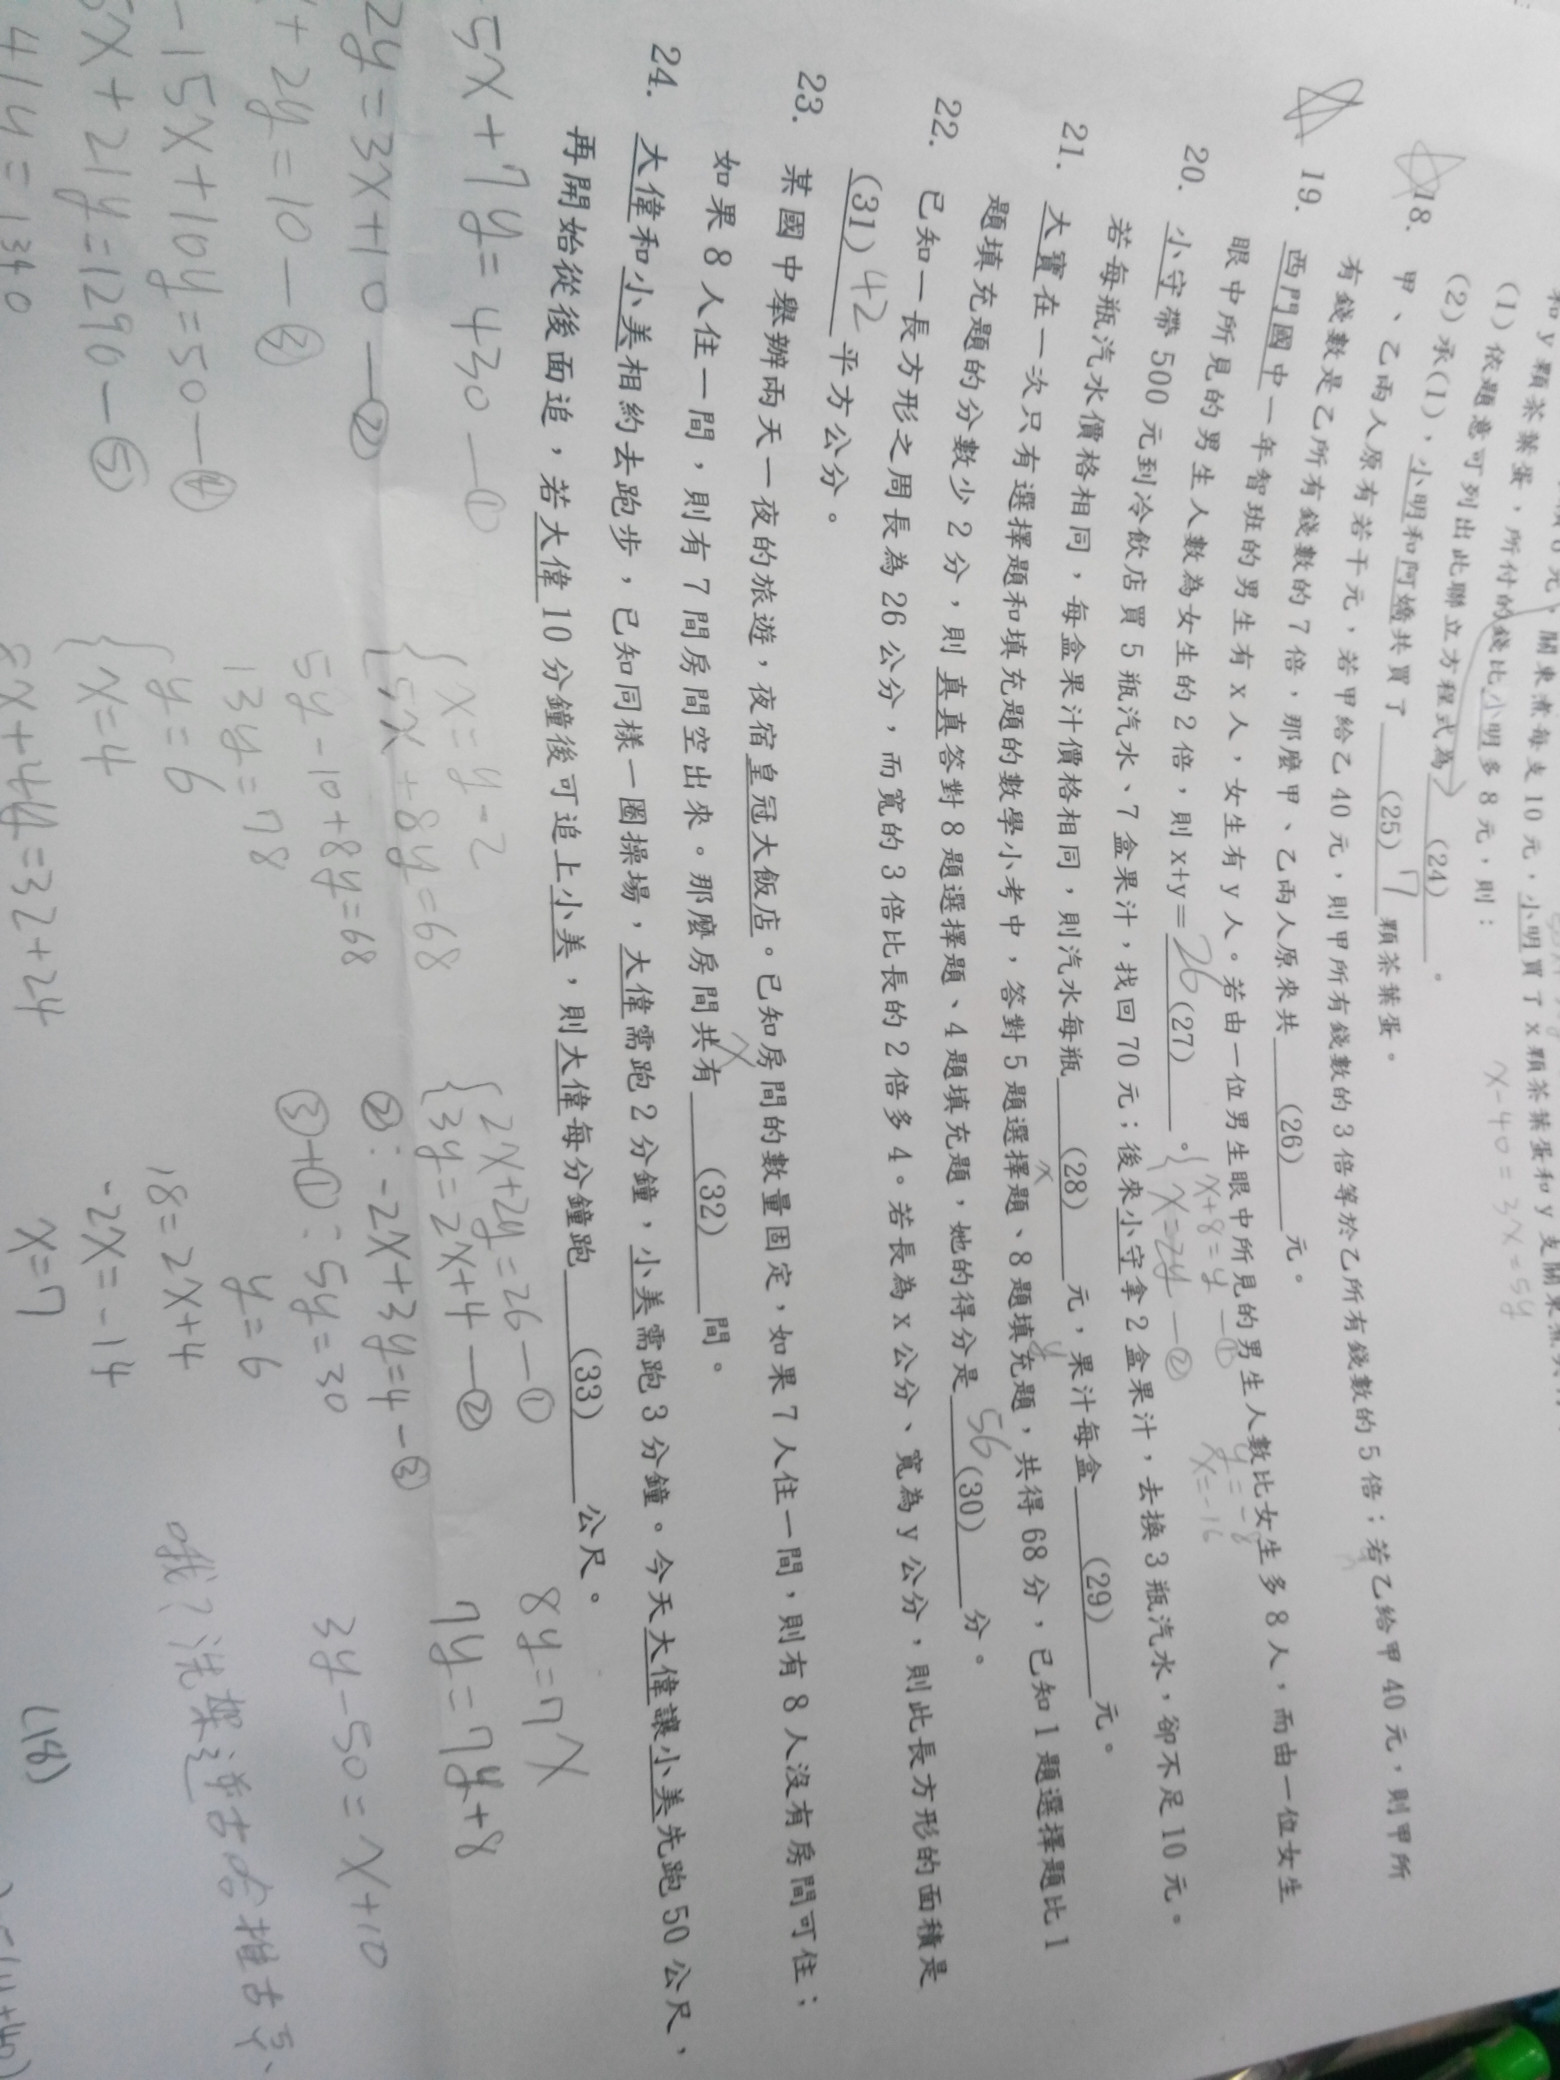 和 y 顆茶葉蛋，所付的錢比小明多 8 元，則：
(1) 依題意可列出此聯立方程式為 (24) 。
(2) 承(1)，小明和阿嬌共買了 (25) 7 顆茶葉蛋。
18. 甲、乙兩人原有若干元，若甲給乙 40 元，則甲所有錢數的 3 倍等於乙所有錢數的 5 倍；若乙給甲 40 元，則甲所
有錢數是乙所有錢數的 7 倍，那麼甲、乙兩人原來共 (26) 元。
x-40=3x=5y
19. 西門國中一年智班的男生有 x 人，女生有 y 人。若由一位男生眼中所見的男生人數比女生多 8 人，而由一位女生
眼中所見的男生人數為女生的 2 倍，則 x+y= 26 (27) 。
{ x+8=y —①
x=2y —②
y=-8
x=-16
20. 小守帶 500 元到冷飲店買 5 瓶汽水、7 盒果汁，找回 70 元；後來小守拿 2 盒果汁，去換 3 瓶汽水，卻不足 10 元。
若每瓶汽水價格相同，每盒果汁價格相同，則汽水每瓶 (28) 元，果汁每盒 (29) 元。
x
y
21. 大寶在一次只有選擇題和填充題的數學小考中，答對 5 題選擇題、8 題填充題，共得 68 分，已知 1 題選擇題比 1
題填充題的分數少 2 分，則真真答對 8 題選擇題、4 題填充題，她的得分是 56 (30) 分。
22. 已知一長方形之周長為 26 公分，而寬的 3 倍比長的 2 倍多 4。若長為 x 公分、寬為 y 公分，則此長方形的面積是
(31) 42 平方公分。
23. 某國中舉辦兩天一夜的旅遊，夜宿皇冠大飯店。已知房間的數量固定，如果 7 人住一間，則有 8 人沒有房間可住；
如果 8 人住一間，則有 7 間房間空出來。那麼房間共有 (32) 間。
x
24. 大偉和小美相約去跑步，已知同樣一圈操場，大偉需跑 2 分鐘，小美需跑 3 分鐘。今天大偉讓小美先跑 50 公尺，
再開始從後面追，若大偉 10 分鐘後可追上小美，則大偉每分鐘跑 (33) 公尺。
5x+7y=430 —①
2y=3x+10 —②
+2y=10 —③
-15x+10y=50 —④
x+21y=1290 —⑤
41y=1340
{ x=y-2
5x+8y=68
5y-10+8y=68
13y=78
{ y=6
x=4
8x+4y=32+24
{ 2x+2y=26 —①
3y=2x+4 —②
②：-2x+3y=4 —③
③+①：5y=30
y=6
18=2x+4
-2x=-14
x=7
8y=7x
7y=7y+8
3y-50=x+10
(18)